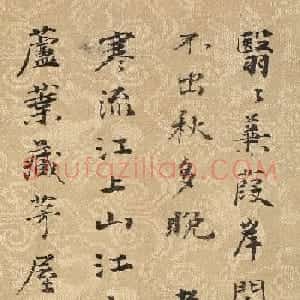 翳翳蒹葭岸閒
不出秋多晚
寒流江上山江
蘆葉蔽茅屋
shufazilian.com